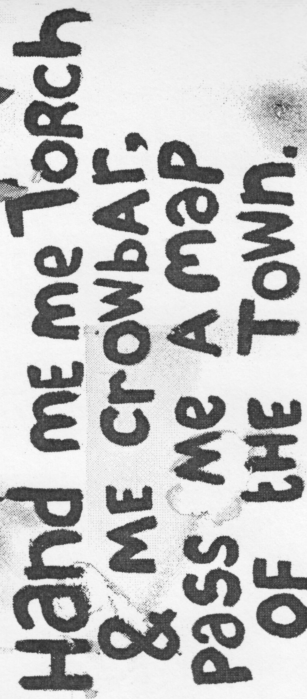 Hand mE me TORCH
& ME CrOWbAr,
pass me A map
OF tHE TOWn.